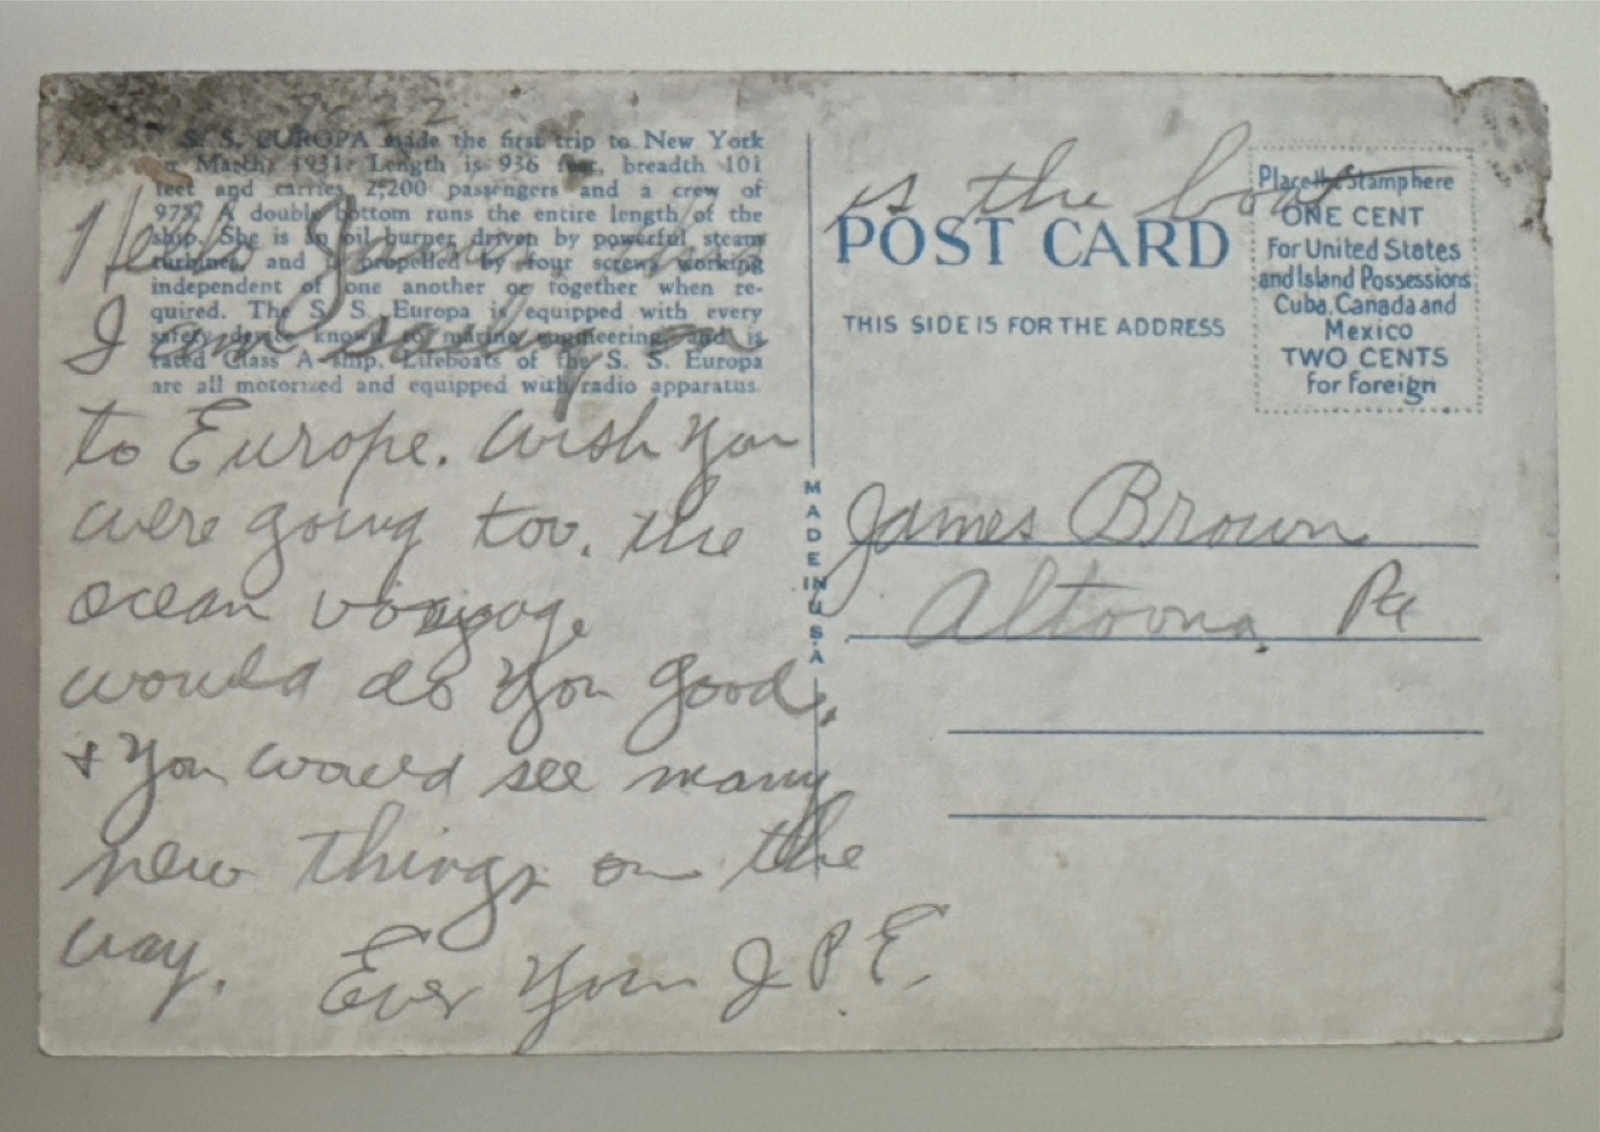 7-22
S. S. EUROPA made the first trip to New York
in March, 1931. Length is 936 feet, breadth 101
feet and carries 2,200 passengers and a crew of
975. A double bottom runs the entire length of the
ship. She is an oil burner driven by powerful steam
turbines, and is propelled by four screws working
independent of one another or together when re-
quired. The S. S. Europa is equipped with every
safety device known to marine engineering and is
rated Class A ship. Lifeboats of the S. S. Europa
are all motorized and equipped with radio apparatus.
Hello James, this is the boat
I am on
to Europe. Wish you
were going too. the
ocean voyage
would do you good,
+ you would see many
new things on the
way.
Ever Your J. P. E.
POST CARD
THIS SIDE IS FOR THE ADDRESS
Place the Stamp here
ONE CENT
For United States
and Island Possessions
Cuba, Canada and
Mexico
TWO CENTS
for Foreign
MADE IN U.S.A
James Brown
Altoona, Pa